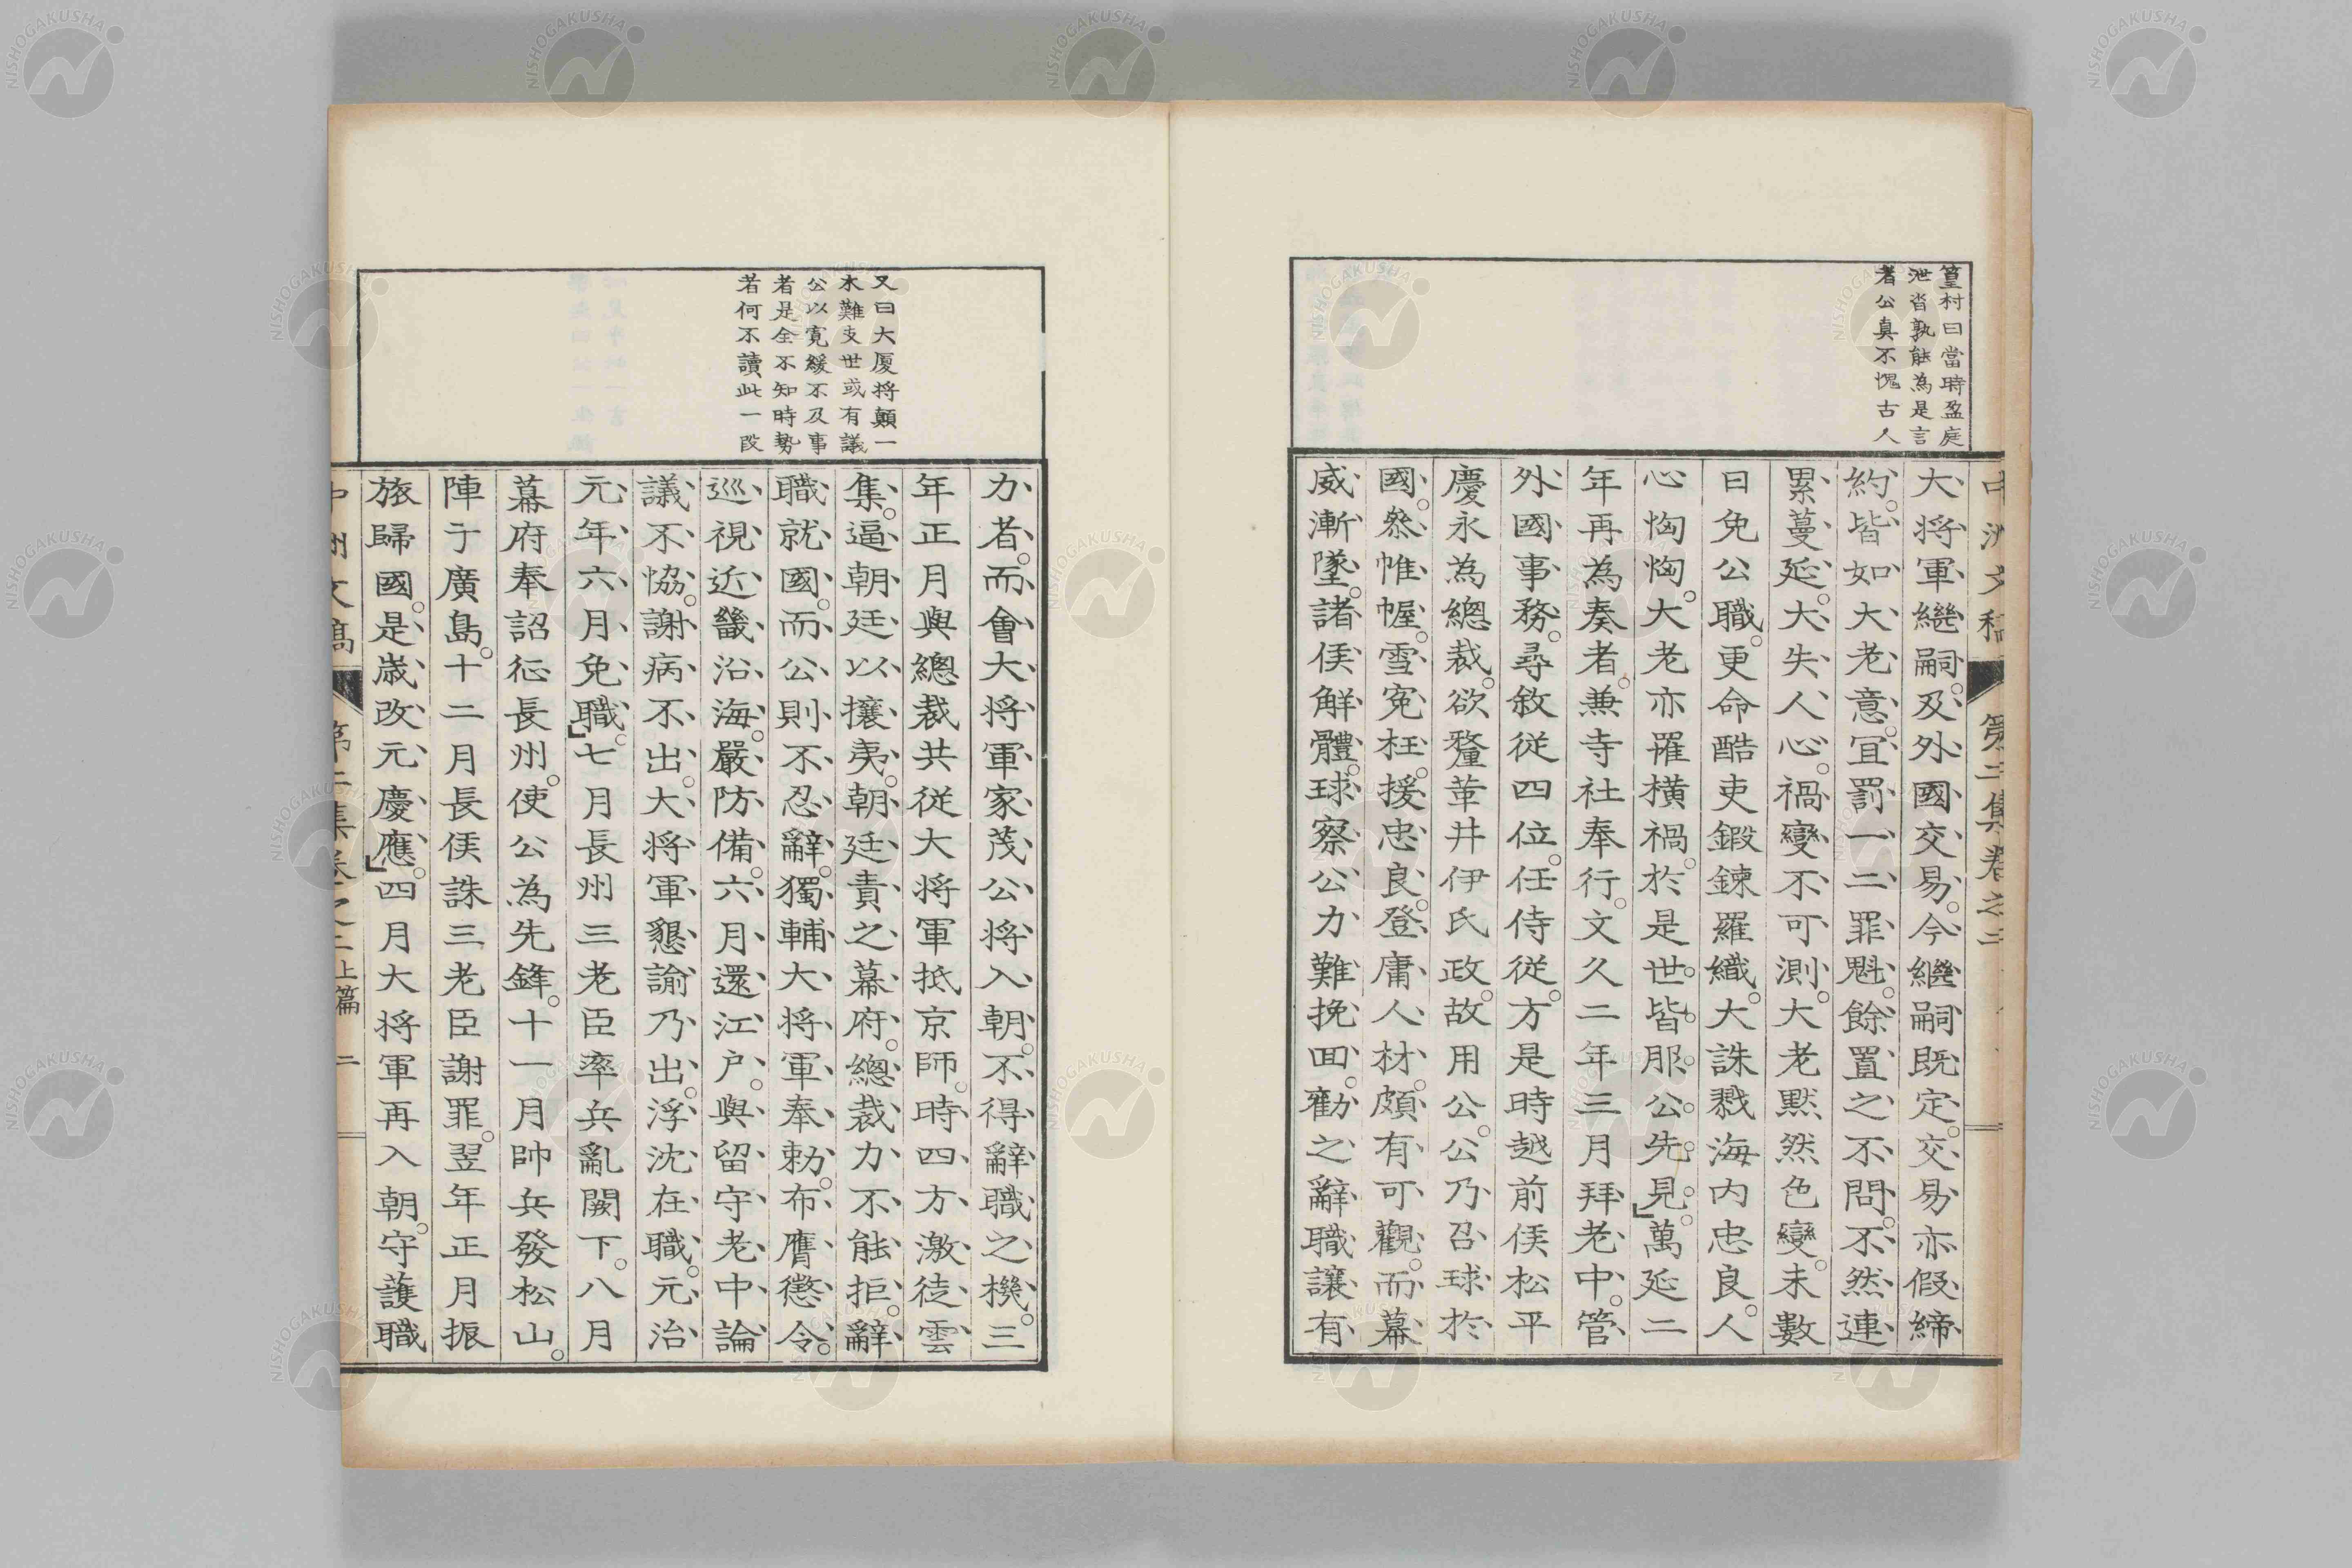 篁村曰當時盈庭
泄沓孰能為是言
者公真不愧古人
大將軍繼嗣。及外國交易。今繼嗣既定。交易亦假締
約。皆如大老意。宜罰一二罪魁。餘置之不問。不然連
累蔓延。大失人心。禍變不可測。大老默然色變。未數
日免公職。更命酷吏鍛鍊羅織。大誅戮海內忠良。人
心恟恟。大老亦罹橫禍。於是世皆服公先見。萬延二
年再為奏者。兼寺社奉行。文久二年三月拜老中。管
外國事務。尋敘從四位。任侍從。方是時越前侯松平
慶永為總裁。欲釐革井伊氏政。故用公。公乃召球於
國。參帷幄。雪冤枉。援忠良。登庸人材。頗有可觀。而幕
威漸墜。諸侯解體。球察公力難挽回。勸之辭職讓有
中洲文稿 第二集卷之二
又曰大厦将顛一
木難支世或有議
公以寬緩不及事
者是全不知時勢
若何不讀此一段
力者。而會大將軍家茂公將入朝。不得辭職之機。三
年正月與總裁共從大將軍抵京師。時四方激徒雲
集。逼朝廷以攘夷。朝廷責之幕府。總裁力不能拒。辭
職就國。而公則不忍辭。獨輔大將軍奉勅。布膺懲令。
巡視近畿沿海。嚴防備。六月還江户。與留守老中論
議不恊。謝病不出。大將軍懇諭乃出。浮沈在職。元治
元年六月免職。七月長州三老臣率兵亂闕下。八月
幕府奉詔征長州。使公為先鋒。十一月帥兵發松山。
陣于廣島。十二月長侯誅三老臣謝罪。翌年正月振
旅歸國。是歲改元慶應。四月大將軍再入朝。守護職
中洲文稿 第二集卷之二上篇 二